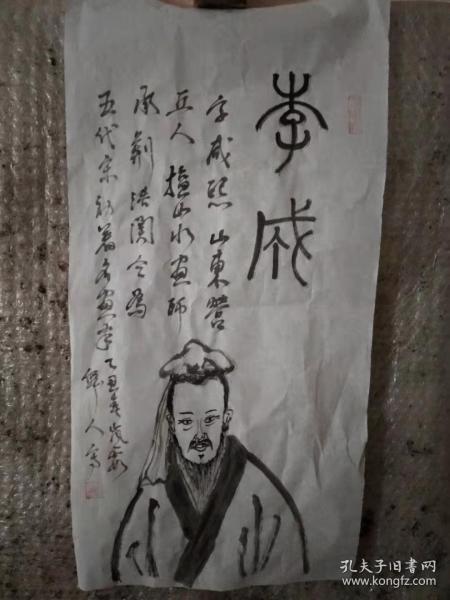 李成
字咸熙山東營
丘人擅山水画师
承荆浩関仝为
五代宋初著名画家乙丑
人写
孔夫子旧书网
www.kongfz.com